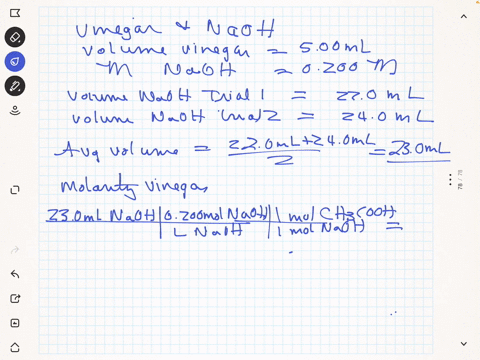 Vinegar & NaOH
volume vinegar = 5.00mL
M NaOH = 0.200 M
volume NaOH Trial 1 = 22.0 mL
volume NaOH trial 2 = 24.0 mL
Avg volume = 22.0mL+24.0mL / 2 = 23.0mL
Molarity vinegar
23.0mL NaOH | 0.200mol NaOH | 1 mol CH3COOH
L NaOH | 1 mol NaOH =
78 / 78